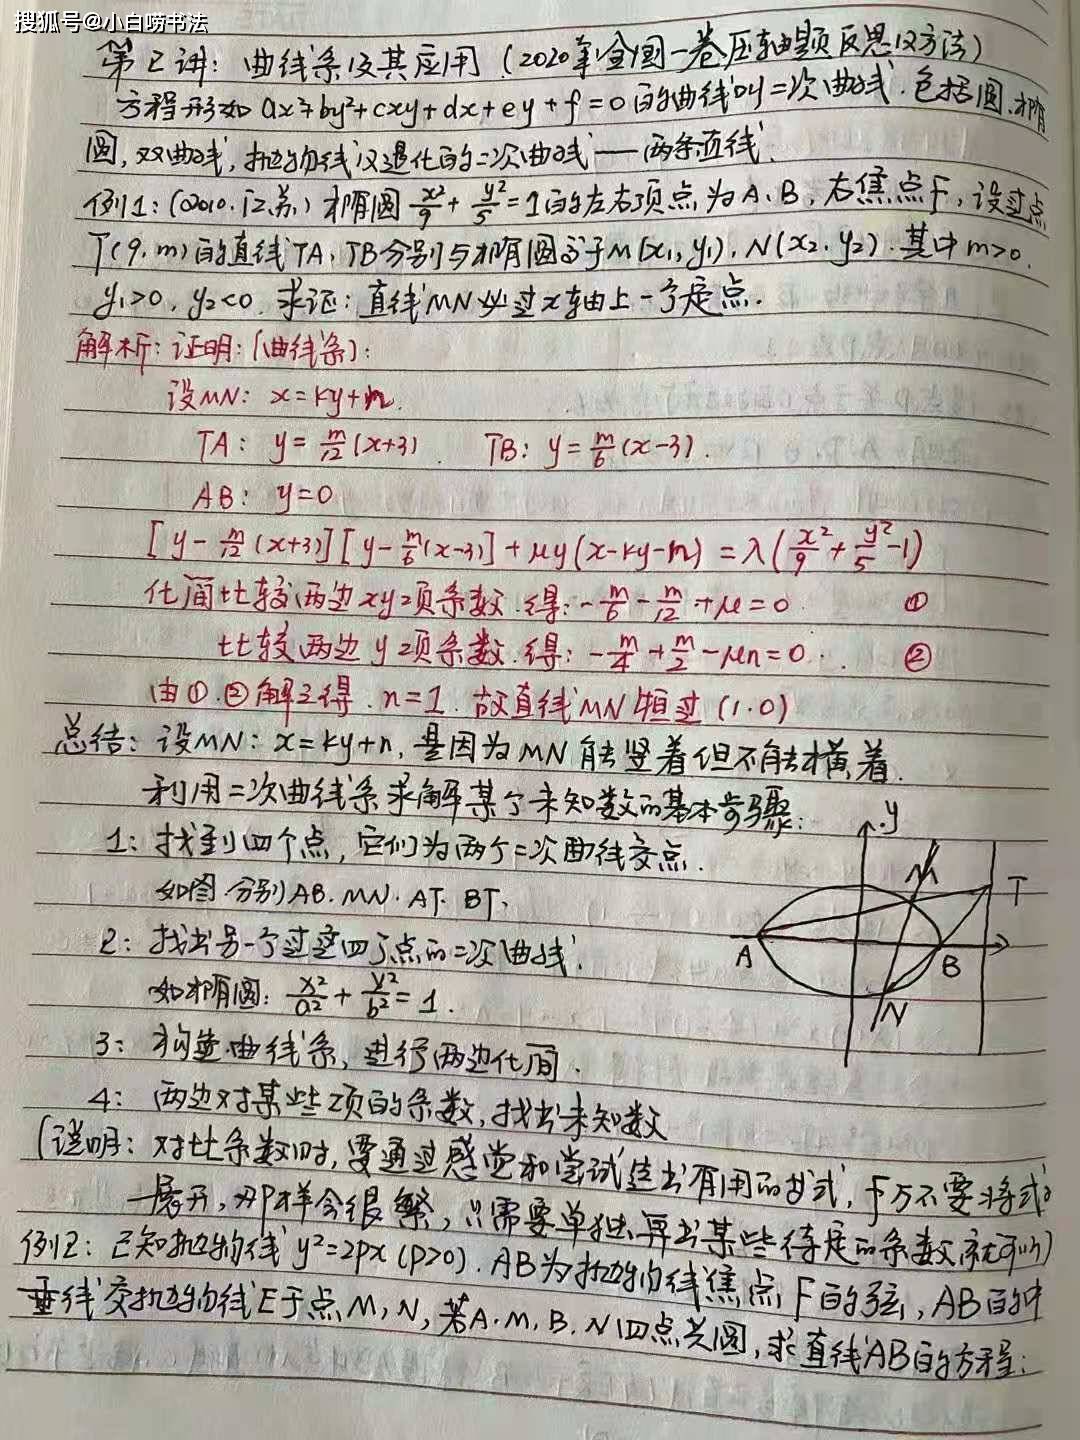 搜狐号@小白唠书法
第2讲：曲线系及其应用（2020年全国一卷压轴题反思及方法）
方程形如 ax²+by²+cxy+dx+ey+f=0 的曲线叫二次曲线．包括圆．椭
圆，双曲线，抛物线及退化的二次曲线——两条直线．
例1：(2010．江苏) 椭圆 x²/9 + y²/5 = 1 的左右顶点为A、B，右焦点F，设过点
T(9，m)的直线TA、TB分别与椭圆于M(x₁,y₁)，N(x₂,y₂)．其中m>0，
y₁>0，y₂<0．求证：直线MN必过x轴上一个定点．
解析：证明：(曲线系)：
设MN：x=ky+n．
TA：y=m/12(x+3)． TB：y=m/6(x-3)．
AB：y=0
[y-m/12(x+3)][y-m/6(x-3)]+μy(x-ky-n)=λ(x²/9+y²/5-1)
化简比较两边xy项系数．得：-m/6-m/12+μ=0． ①
比较两边y项系数．得：-m/4+m/2-μn=0． ②
由①．②解之得．n=1．故直线MN恒过(1．0)
总结：设MN：x=ky+n，是因为MN能竖着但不能横着．
利用二次曲线系求解某个未知数的基本步骤：
1：找到四个点，它们为两个二次曲线交点．
如图．分别AB．MN．AT．BT．
2：找出另一个过这四个点的二次曲线．
如椭圆：x²/a²+y²/b²=1．
3：构造曲线系，进行两边化简．
4：两边对某些项的系数，找出未知数
y
M
T
A
B
N
(说明：对比系数时，要通过感觉和尝试选出有用的式，千万不要将式子
一展开，那样会很繁，只需要单独算出某些待定的系数就可以)
例2：已知抛物线y²=2px(p>0)．AB为抛物线焦点F的弦，AB的中
垂线交抛物线E于点M，N，若A．M．B．N四点共圆，求直线AB的方程：